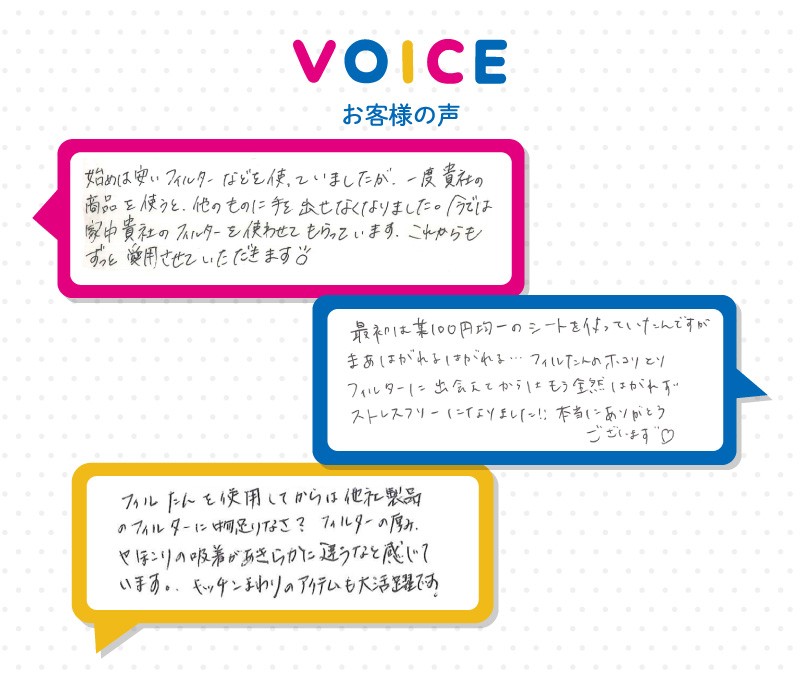 VOICE
お客様の声
始めは安いフィルターなどを使っていましたが、一度貴社の
商品を使うと、他のものに手を出せなくなりました。今では
家中貴社のフィルターを使わせてもらっています。これからも
ずっと愛用させていただきます
最初は某100円均一のシートを使っていたんですが
まあはがれるはがれる…フィルたんのホコリとり
フィルターに出会えてからはもう全然はがれず
ストレスフリーになりました!!本当にありがとう
ございます♡
フィルたんを使用してからは他社製品
のフィルターに物足りなさ?フィルターの厚み、
やほこりの吸着があきらかに違うなと感じて
います。キッチンまわりのアイテムも大活躍です!